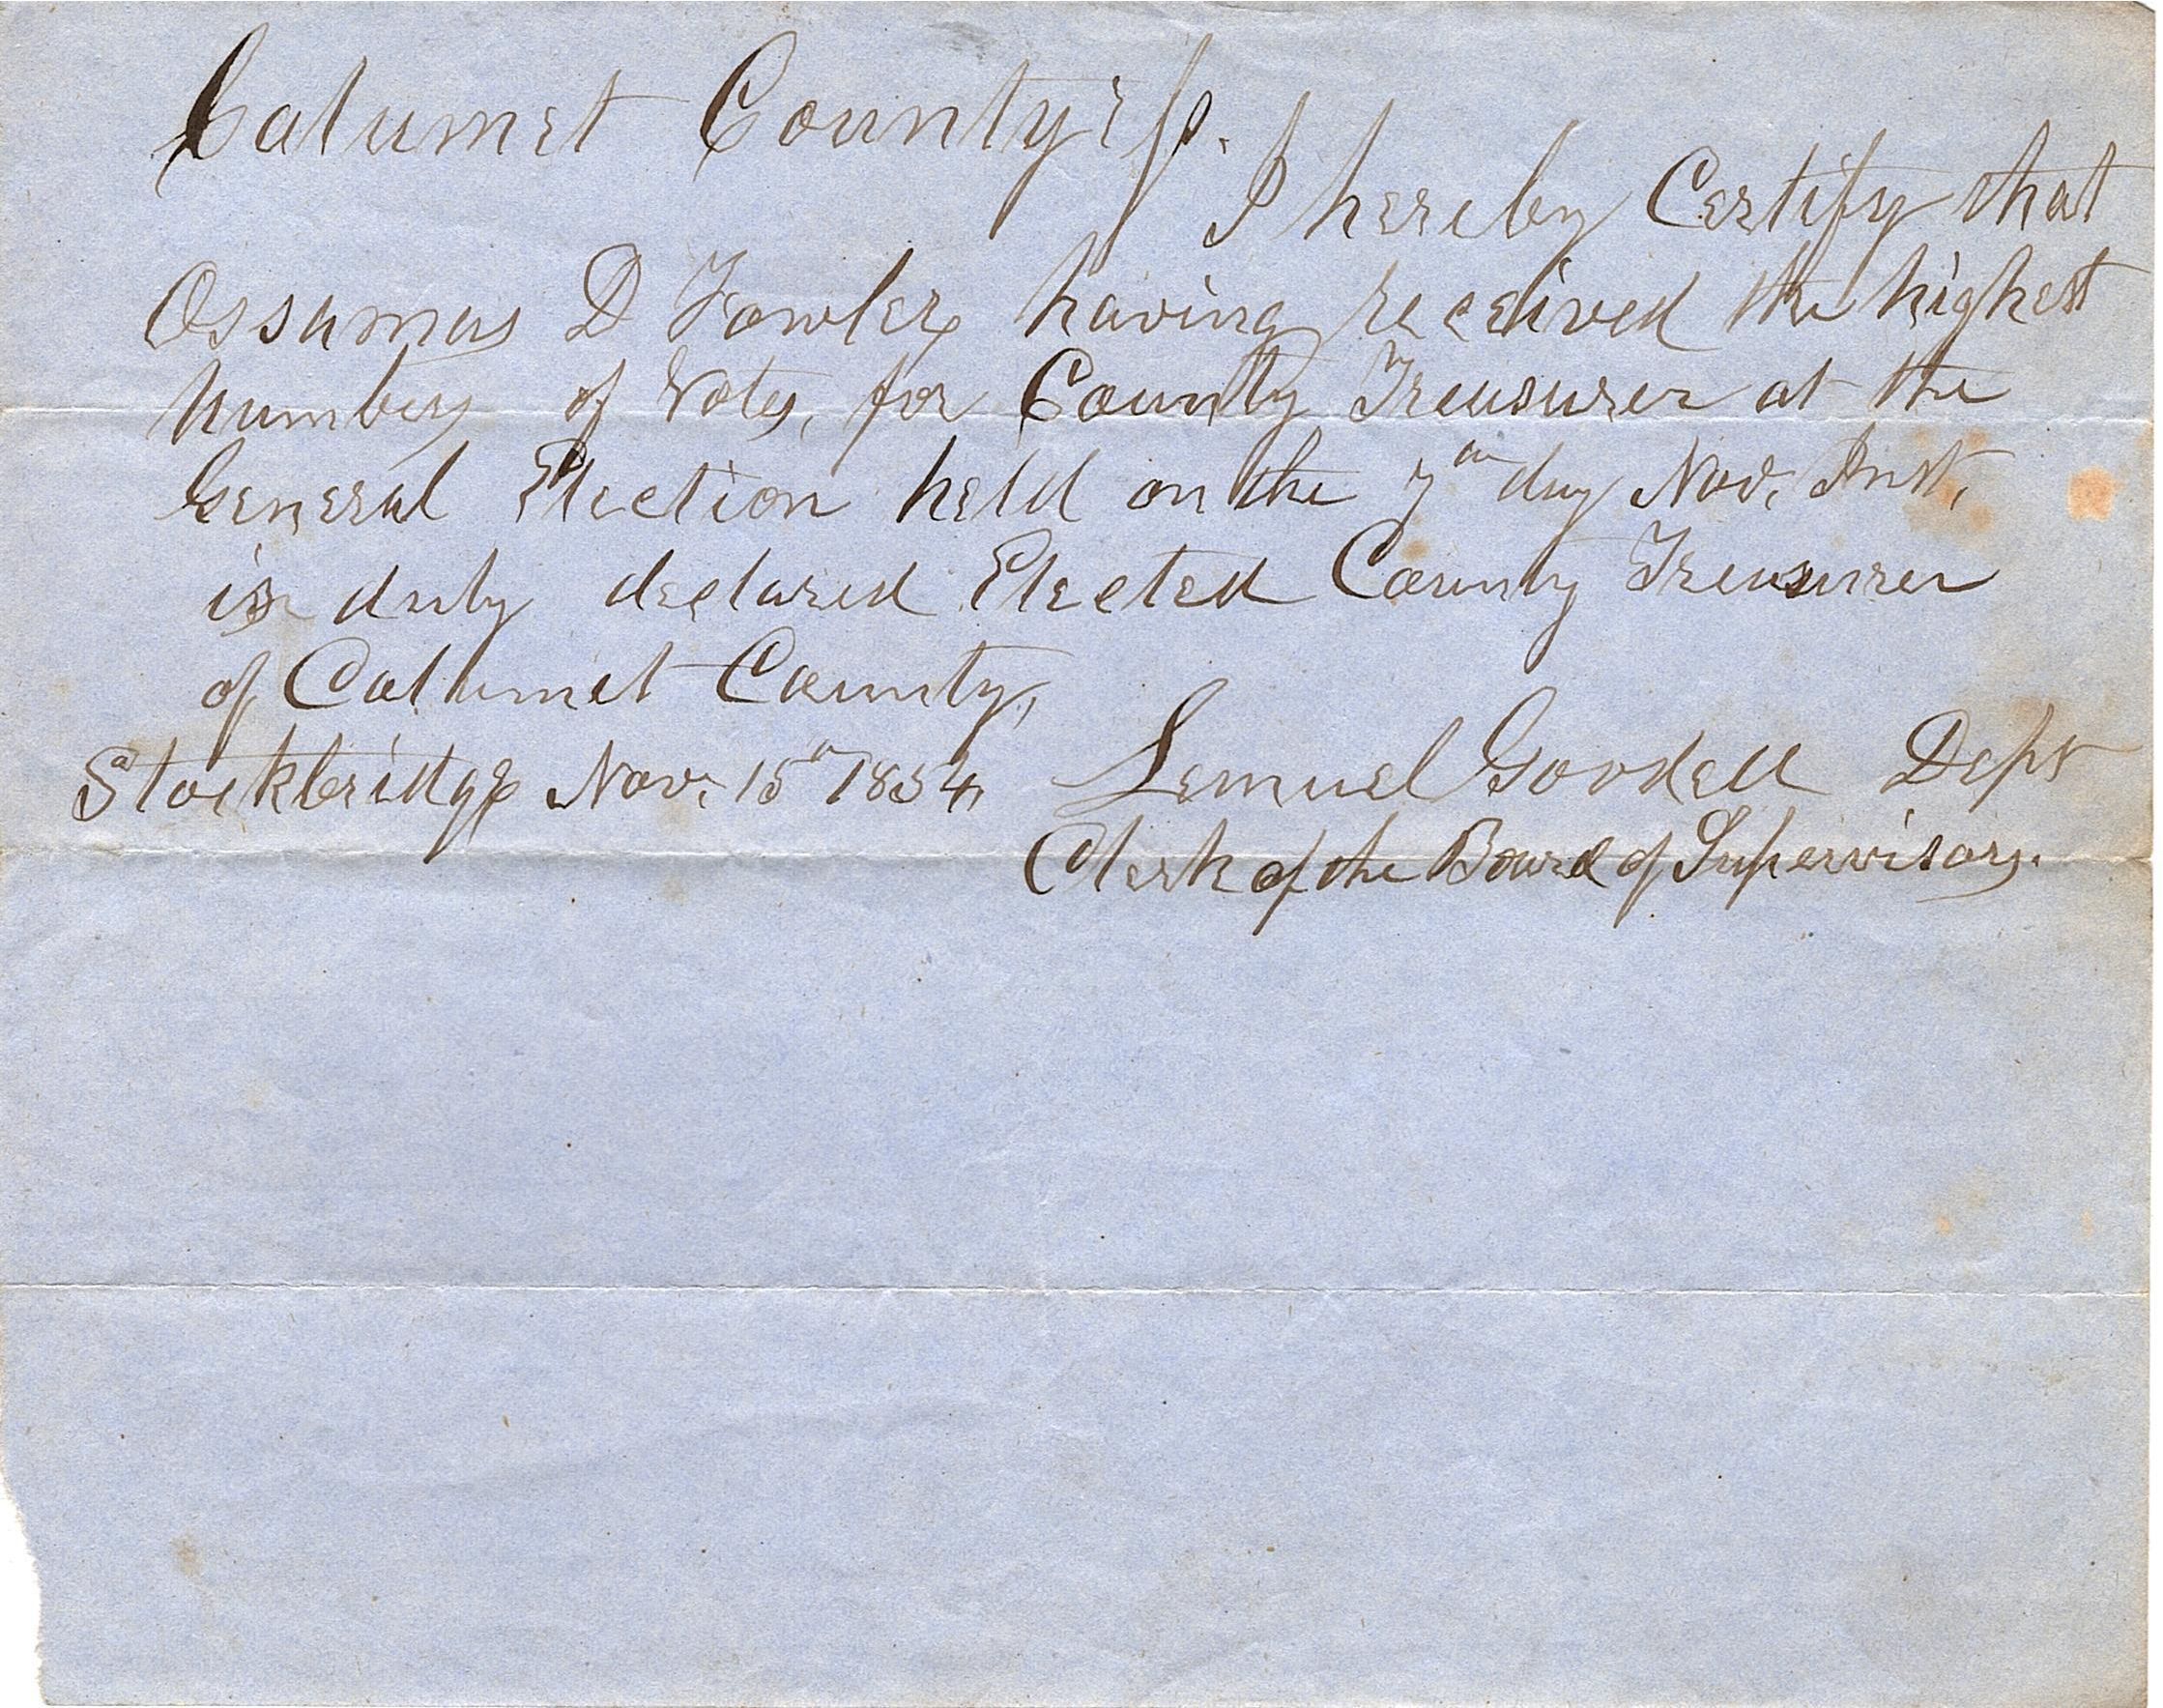 Calumet County ss.
I hereby Certify that
Ossamus D Fowler having received the highest
Number of Votes, for County Treasurer at the
General Election held on the 7th day Nov. Inst,
is duly declared Elected County Treasurer
of Calumet County,
Stockbridge Nov. 15th 1854, Lemuel Goodell Dept
Clerk of the Board of Supervisors.